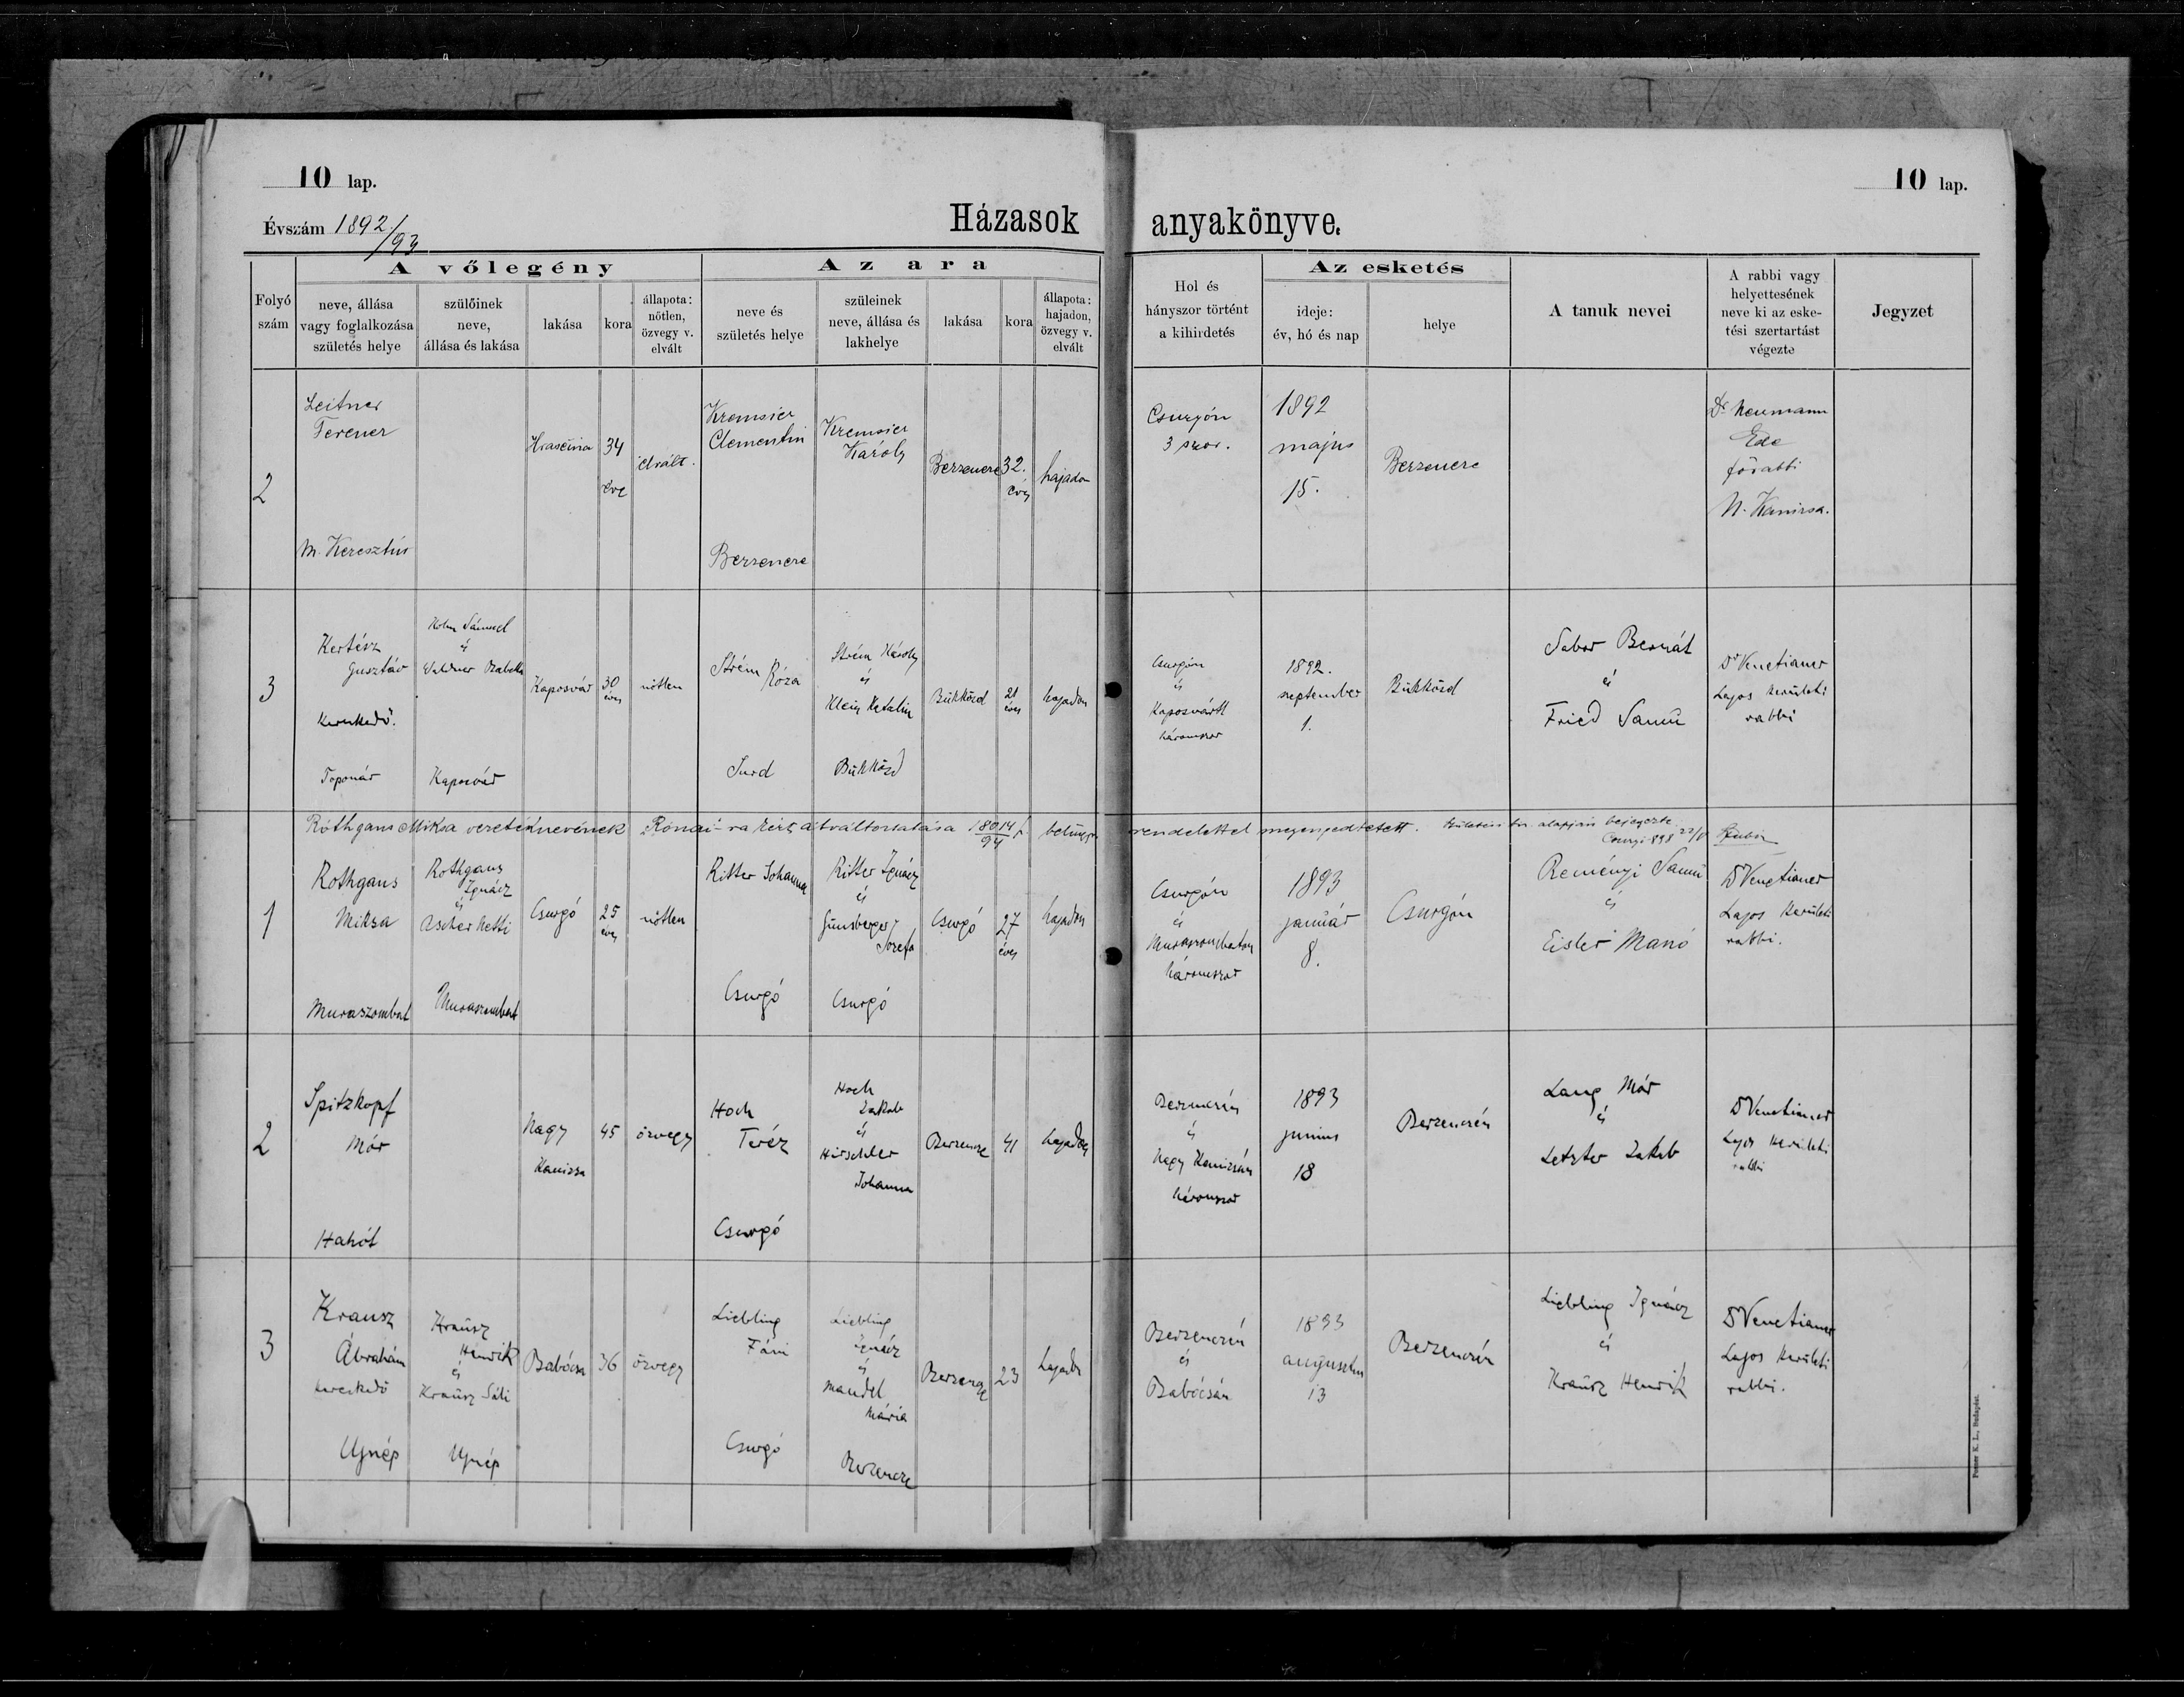 10 lap.
10 lap.
Évszám 1892/93
Házasok anyakönyve.
A vőlegény
Az ara
Az esketés
Folyó szám
neve, állása vagy foglalkozása születés helye
szülőinek neve, állása és lakása
lakása
kora
állapota: nőtlen, özvegy v. elvált
neve és születés helye
szüleinek neve, állása és lakhelye
lakása
kora
állapota: hajadon, özvegy v. elvált
Hol és hányszor történt a kihirdetés
ideje: év, hó és nap
helye
A tanuk nevei
A rabbi vagy helyettesének neve ki az esketési szertartást végezte
Jegyzet
2
Leitner
Ferencr
M. Keresztúr
34
elvált.
Kremsier
Clementin
Berzencze
Kremsier
Károly
Berzencze
32.
éves
hajadon
Csurgón
3 szor.
1892
majus
15.
Berzencze
Dr Neumann
Ede
főrabbi
N. Kanizsa.
3
Kertész
Gusztáv
Kereskedő.
Toponár
Kohn Sámuel
és
Kaposvár
Kaposvár
30
éves
nőtlen
Strém
Róza
Surd
Strém Károly
és
Klein Katalin
Bükkösd
Bükkösd
21
éves
hajadon
Csurgón
és
Kaposvártt
háromszor
1892.
september
1.
Bükkösd
Sabor Bernát
és
Fried Samu
Dr Venetianer
Lajos kerületi
rabbi
Róthgans Miksa vezetéknevének "Rónai"-ra kért átváltoztatása
rendelettel megengedtetett.
1
Rothgans
Miksa
Muraszombat
Rothgans
Ignácz
és
Ascher Netti
Muraszombat
Csurgó
25
éves
nőtlen
Ritter Johanna
Csurgó
Ritter Ignácz
és
Günsberger
Jozefa
Csurgó
Csurgó
27
éves
hajadon
Csurgón
és
Muraszombatban
háromszor
1893
január
8.
Csurgón
Reményi Samu
és
Eisler Manó
Dr Venetianer
Lajos kerületi
rabbi.
2
Spitzkopf
Mór
Hahót
Nagy
Kanizsa
45
özvegy
Hoch
Teréz
Csurgó
Hoch
Jakab
és
Hirschler
Johanna
Berzencze
41
hajadon
Berzenczén
és
Nagy Kanizsán
háromszor
1893
junius
18
Berzenczén
Lang Mór
és
Letzter Jakab
Dr Venetianer
Lajos kerületi
rabbi
3
Krausz
Ábrahám
kereskedő
Ujnép
Krausz
Henrik
és
Krausz Sáli
Ujnép
Babócsa
36
özvegy
Liebling
Fáni
Csurgó
Liebling
Ignácz
és
Mandel
Mária
Berzencze
Berzencze
23
hajadon
Berzenczén
és
Babócsán
1893
augusztus
13
Berzenczén
Liebling Ignácz
és
Krausz Henrik
Dr Venetianer
Lajos kerületi
rabbi.
Posner K. L., Budapest.